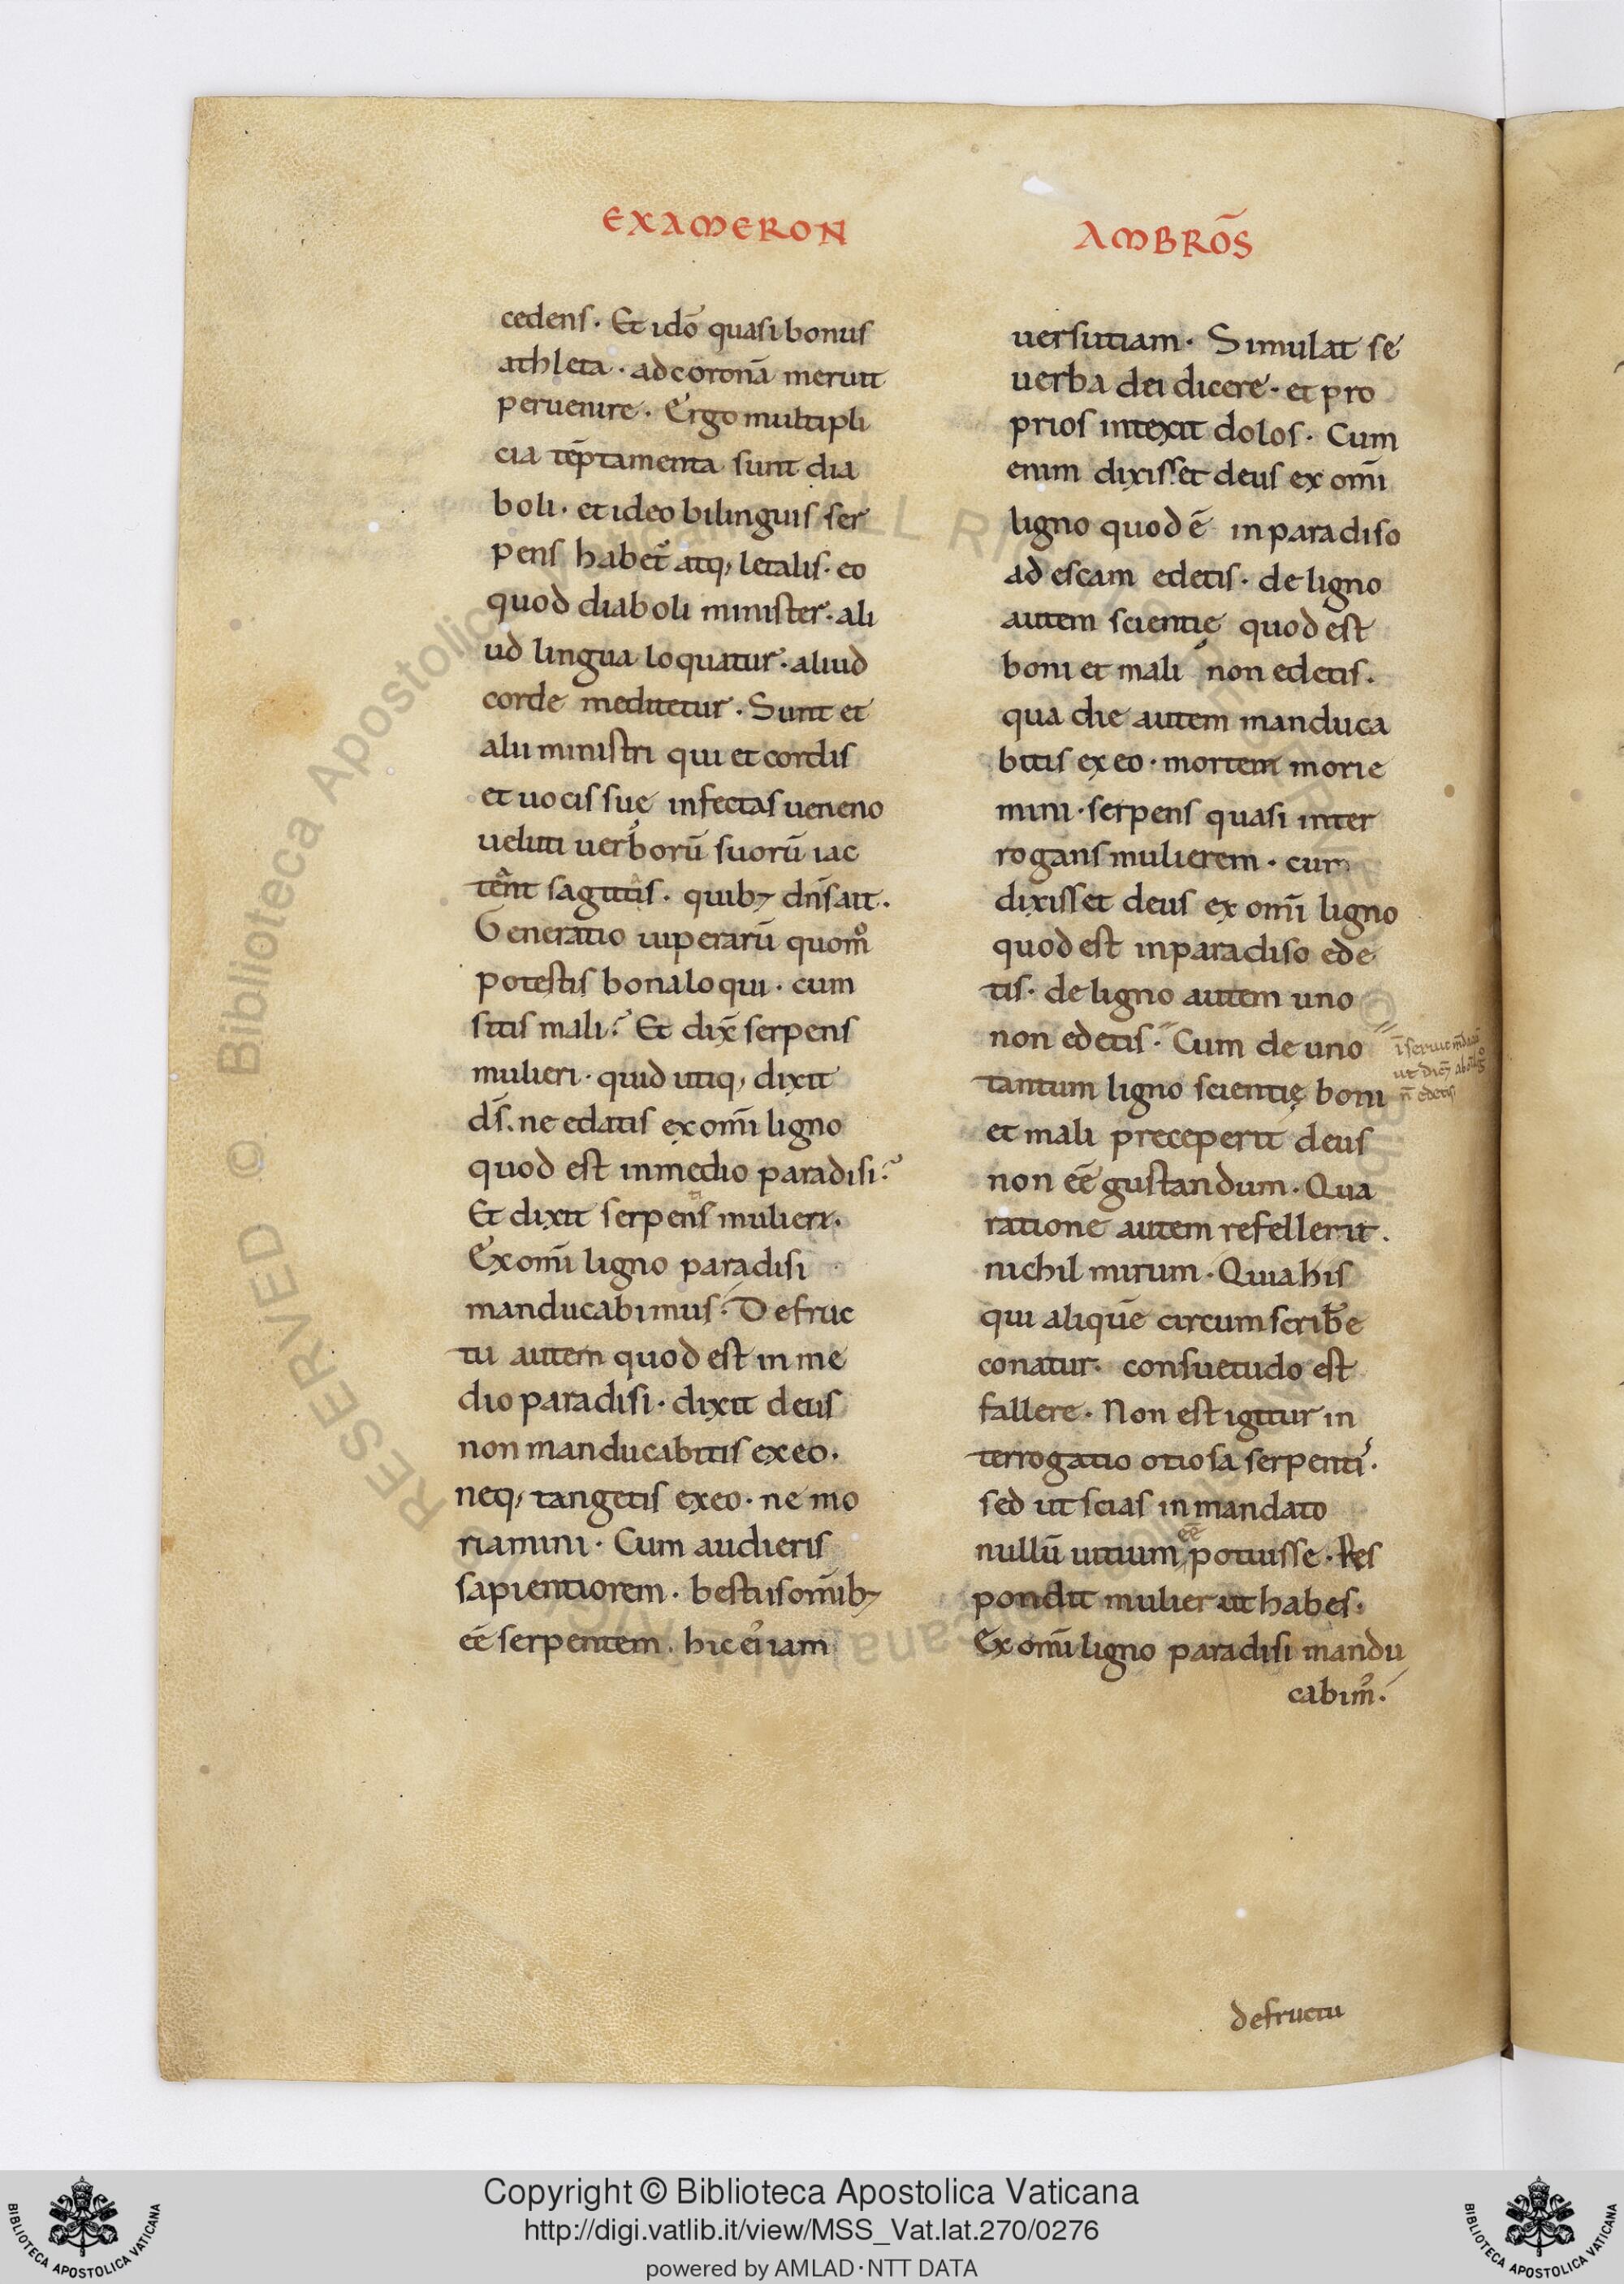 EXAMERON
AMBRO̅S
cedens. Et ideo̅ quasi bonus
athleta. ad corona̅ meruit
peruenire. Ergo multipli
cia te̅ptamenta sunt dia
boli. et ideo bilinguis ser
pens habet᷑ atq; letalis. eo
quod diaboli minister. ali
ud lingua loquatur. aliud
corde meditetur. Sunt et
alii ministri qui et cordis
et uocis suę infectas ueneno
ueluti uerboru̅ suoru̅ iac
tent sagittis. quib; dn̅s ait.
Generatio uiperaru̅ quom̊
potestis bona loqui. cum
sitis mali? Et dix̅ serpens
mulieri. quid utiq; dixit
ds̅. ne edatis ex om̅i ligno
quod est in medio paradisi?
Et dixit serpens mulier.
Ex om̅i ligno paradisi
manducabimus. De fruc
tu autem quod est in me
dio paradisi. dixit deus
non manducabitis ex eo.
neq; tangetis ex eo. ne mo
riamini. Cum audieris
sapientiorem. bestiis om̅ib;
ee̅ serpentem. hic ei᷑ iam
uersutiam. Simulat se
uerba dei dicere. et pro
prios intexit dolos. Cum
enim dixisset deus ex om̅i
ligno quod e̅ in paradiso
ad escam edetis. de ligno
autem scientię quod est
boni et mali non edetis.
qua die autem manduca
bitis ex eo. mortem morie
mini. serpens quasi inter
rogans mulierem. cum
dixisset deus ex om̅i ligno
quod est in paradiso ede
tis. de ligno autem uno
non edetis. Cum de uno
tantum ligno scientię boni
et mali preceperit deus
non ee̅ gustandum. Qua
ratione autem refellerit.
nichil mirum. Quia his
qui alique̅ circumscrib̅e
conatur. consuetudo est
fallere. Non est igitur in
terrogatio otiosa serpenti᷑.
sed ut scias in mandato
ee̅
nullu̅ uitium potuisse. Res
pondit mulier ut habes.
Ex om̅i ligno paradisi mandu
cabim᷒.
n̅ edetis
de fructu
Copyright © Biblioteca Apostolica Vaticana
http://digi.vatlib.it/view/MSS_Vat.lat.270/0276
powered by AMLAD·NTT DATA
BIBLIOTECA APOSTOLICA VATICANA
BIBLIOTECA APOSTOLICA VATICANA